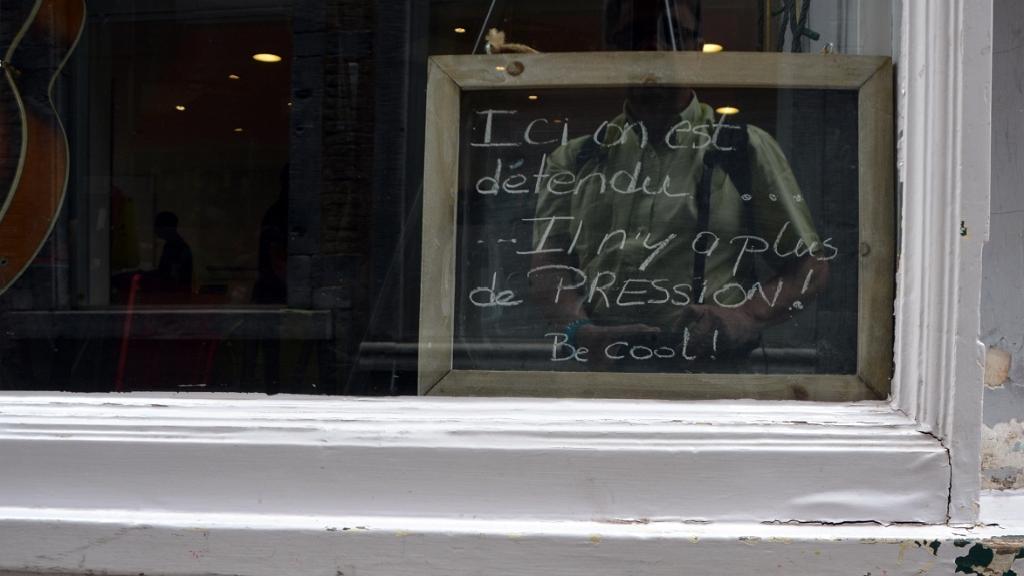 Ici on est
détendu ...
... Il n'y a plus
de PRESSION!
Be cool!